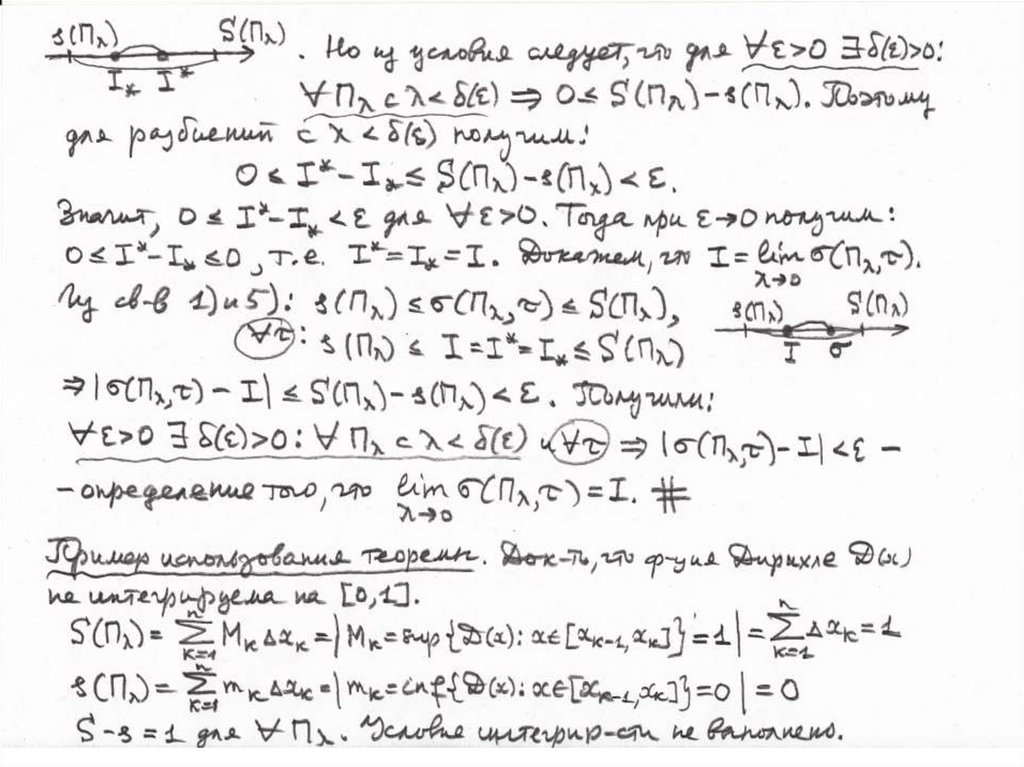 s(Πλ) S(Πλ)
I* I*
. Но из условия следует, что для ∀ε>0 ∃δ(ε)>0:
∀Πλ с λ<δ(ε) ⇒ 0≤ S(Πλ)-s(Πλ). Поэтому
для разбиений с λ<δ(ε) получим:
0 ≤ I^*-I_* ≤ S(Πλ)-s(Πλ) < ε.
Значит, 0 ≤ I^*-I_* < ε для ∀ε>0. Тогда при ε→0 получим:
0≤I^*-I_*≤0, т.е. I^*=I_*=I. Докажем, что I=lim σ(Πλ,τ).
λ→0
Из св-в 1) и 5): s(Πλ) ≤ σ(Πλ,τ) ≤ S(Πλ),
s(Πλ) S(Πλ)
I σ
∀τ: s(Πλ) ≤ I=I^*=I_* ≤ S(Πλ)
⇒ |σ(Πλ,τ) - I| ≤ S(Πλ)-s(Πλ) < ε. Получили:
∀ε>0 ∃δ(ε)>0: ∀Πλ с λ<δ(ε) и ∀τ ⇒ |σ(Πλ,τ)-I| <ε -
- определение того, что lim σ(Πλ,τ) = I. #
λ→0
Пример использования теоремы. Док-ть, что ф-ция Дирихле D(x)
не интегрируема на [0,1].
S(Πλ) = ∑_{k=1}^{n} M_k Δx_k = | M_k = sup{D(x): x∈[x_{k-1}, x_k]} = 1 | = ∑_{k=1}^{n} Δx_k = 1
s(Πλ) = ∑_{k=1}^{n} m_k Δx_k = | m_k = inf{D(x): x∈[x_{k-1}, x_k]} = 0 | = 0
S-s = 1 для ∀Πλ. Условие интегрир-сти не выполнено.